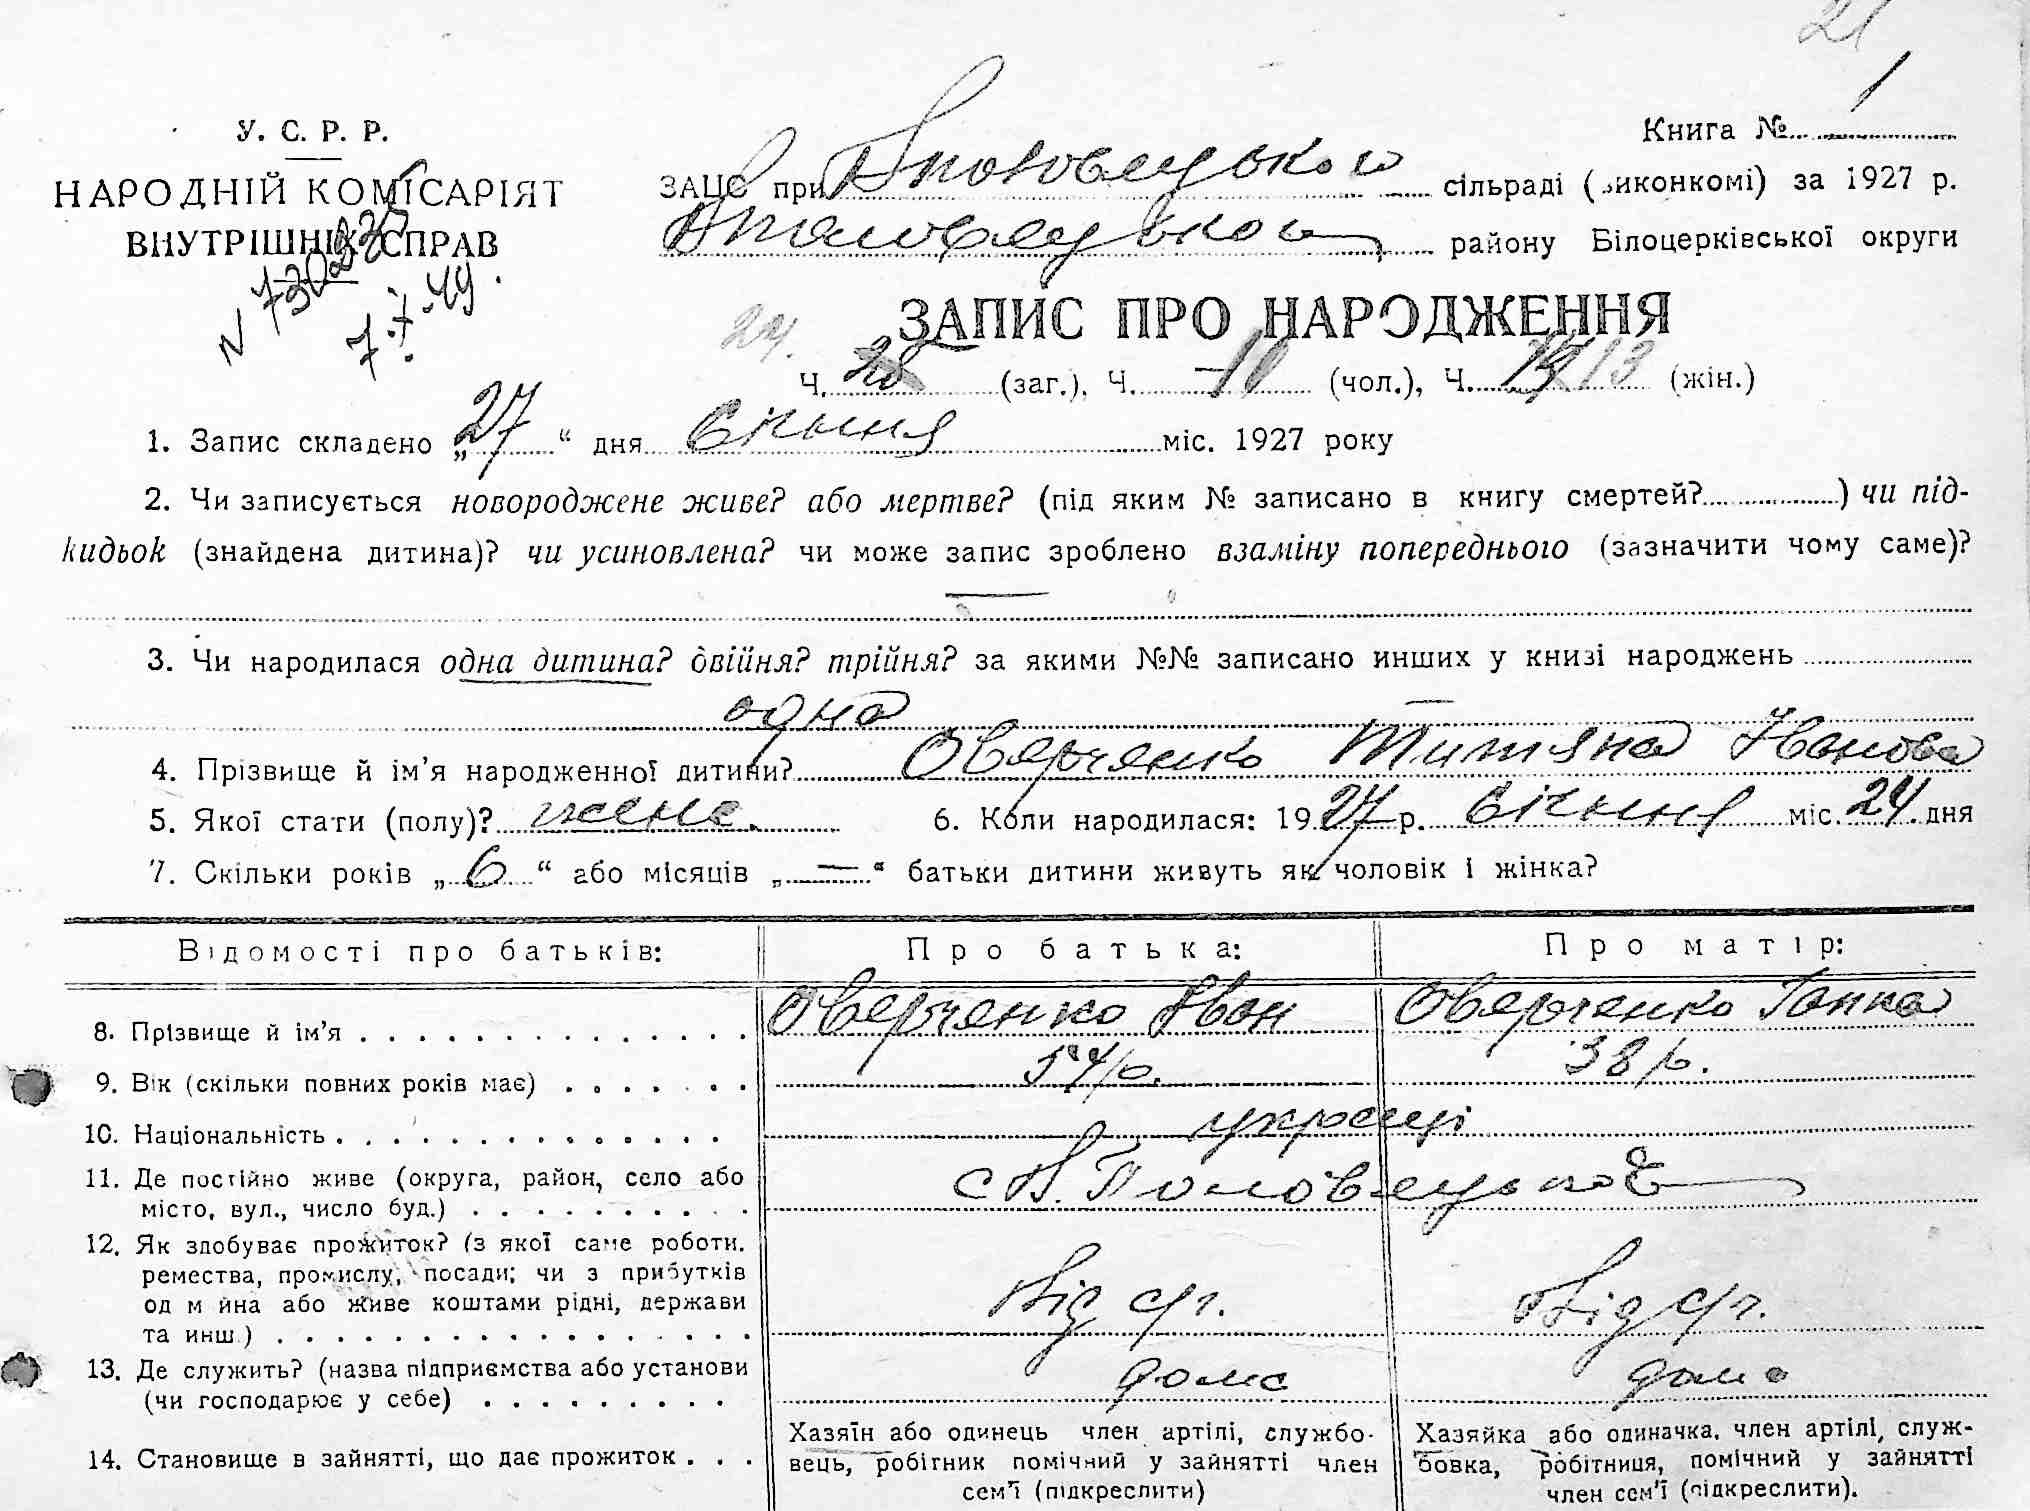 21
Книга №. 1
У. С. Р. Р.
НАРОДНІЙ КОМІСАРІЯТ
ВНУТРІШНІХ СПРАВ
N 730275
7.7.49.
ЗАЦС при сільраді (виконкомі) за 1927 р.
району Білоцерківської округи
ЗАПИС ПРО НАРОДЖЕННЯ
24.
Ч. (заг.), Ч. 10 (чол.), Ч. 13 (жін.)
1. Запис складено „27“ дня Січння міс. 1927 року
2. Чи записується новороджене живе? або мертве? (під яким № записано в книгу смертей? ) чи під-
кидьок (знайдена дитина)? чи усиновлена? чи може запис зроблено взаміну попереднього (зазначити чому саме)?
—
3. Чи народилася одна дитина? двійня? трійня? за якими №№ записано инших у книзі народжень
одна —
4. Прізвище й ім’я народженної дитини? Оверченко Титяна Іванова
5. Якої стати (полу)? жено. 6. Коли народилася: 1927 р. Січння міс. 24 дня
7. Скільки років „6“ або місяців „—“ батьки дитини живуть як чоловік і жінка?
Відомості про батьків: Про батька: Про матір:
8. Прізвище й ім’я Оверченко Іван Оверченко Ганна
9. Вік (скільки повних років має) 54 р. 38 р.
10. Національність україці
11. Де постійно живе (округа, район, село або
місто, вул., число буд.)
12. Як здобуває прожиток? (з якої саме роботи,
ремества, промислу, посади; чи з прибутків
од м йна або живе коштами рідні, держави
та инш.) Від с/г. Від с/г.
13. Де служить? (назва підприємства або установи
(чи господарює у себе) дома дома
14. Становище в зайнятті, що дає прожиток
Хазяїн або одинець член артілі, службо-
вець, робітник помічний у зайнятті член
сем’ї (підкреслити)
Хазяйка або одиначка, член артілі, служ-
бовка, робітниця, помічний у зайнятті
член сем’ї (підкреслити).